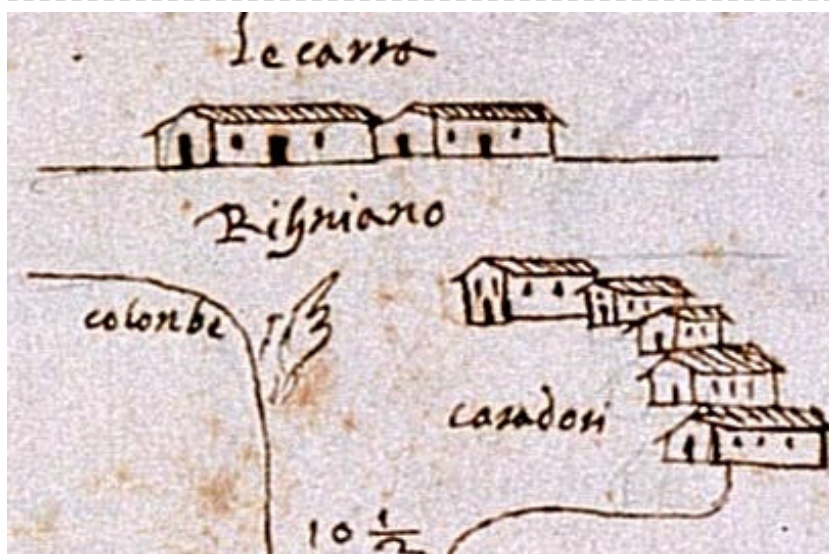 Le carra
Rihniano
colonbe
casadosi
10 1/2